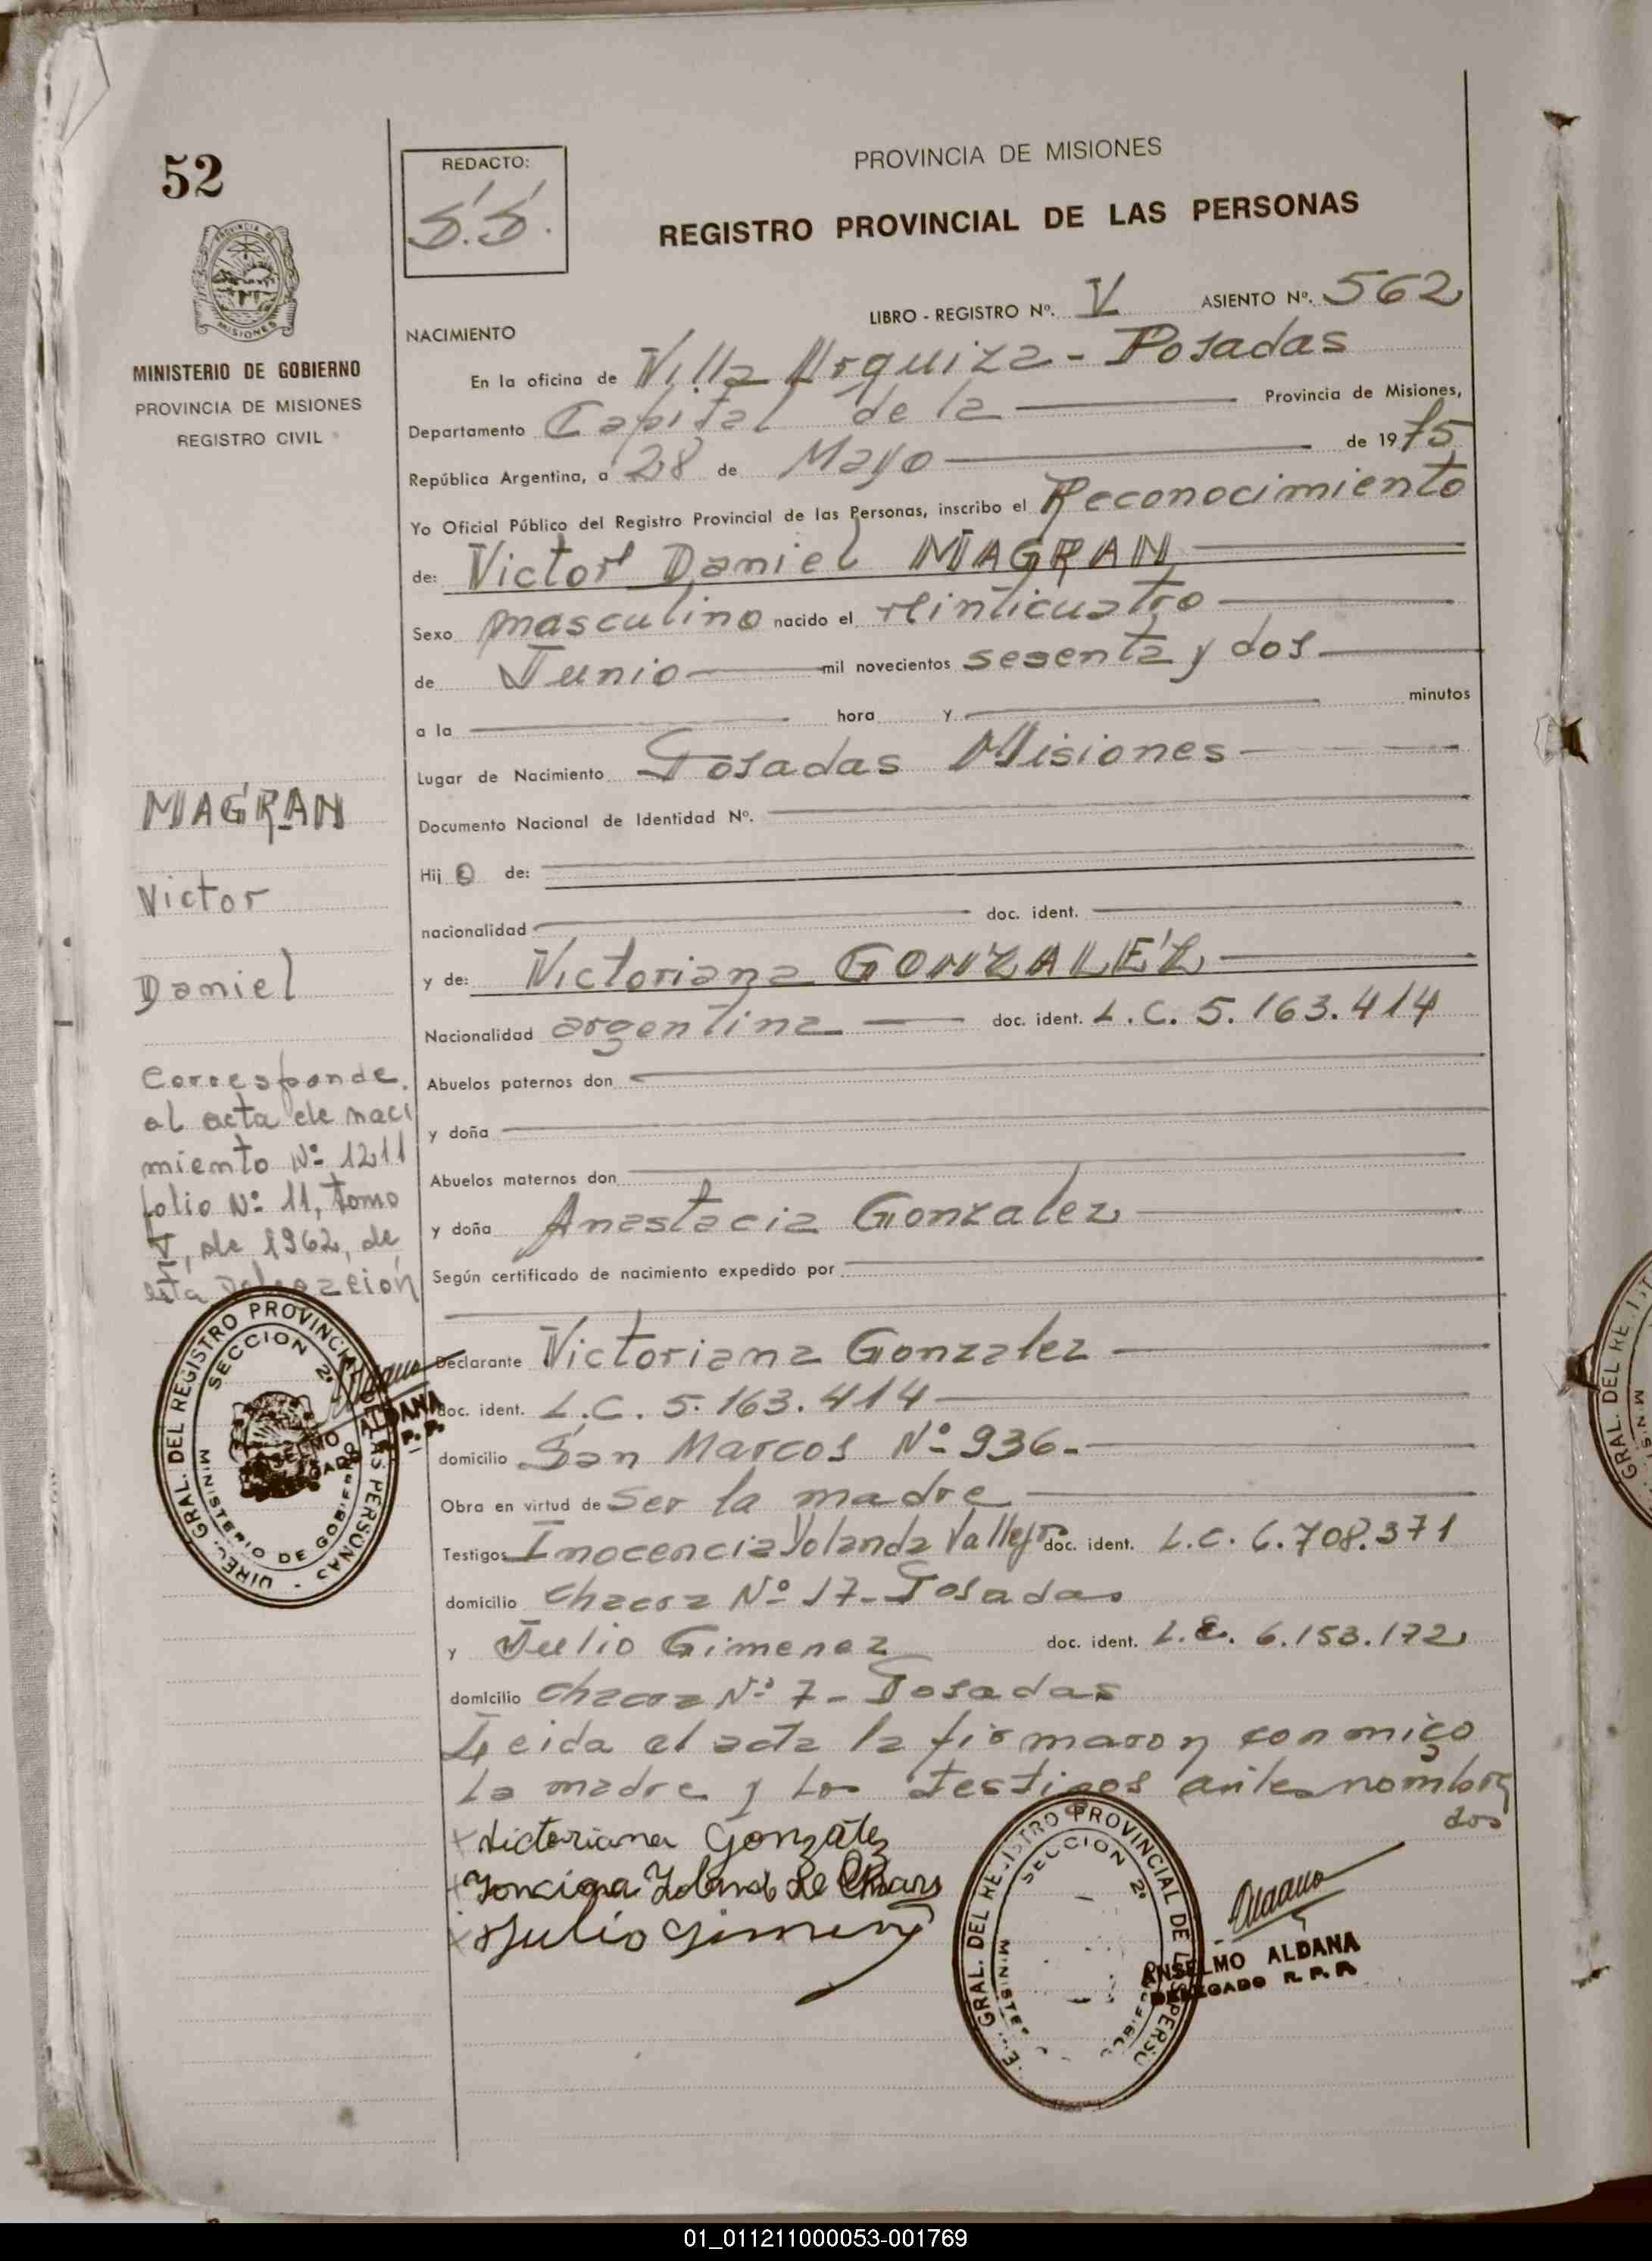 52
REDACTO:
S.S.
PROVINCIA DE MISIONES
REGISTRO PROVINCIAL DE LAS PERSONAS
PROVINCIA DE
MISIONES
MINISTERIO DE GOBIERNO
PROVINCIA DE MISIONES
REGISTRO CIVIL
LIBRO - REGISTRO Nº. V ASIENTO Nº. 562
NACIMIENTO
En la oficina de Villa Urquiza - Posadas
Departamento Capital de la Provincia de Misiones,
República Argentina, a 28 de Mayo de 1975
Yo Oficial Público del Registro Provincial de las Personas, inscribo el Reconocimiento
de: Victor Daniel MAGRAN
Sexo masculino nacido el veinticuatro
de Junio mil novecientos sesenta y dos
a la hora y minutos
Lugar de Nacimiento Posadas Misiones
Documento Nacional de Identidad Nº.
Hijo de:
nacionalidad doc. ident.
y de: Victoriana GONZALEZ
Nacionalidad argentina doc. ident. L.C. 5.163.414
Abuelos paternos don
y doña
Abuelos maternos don
y doña Anastacia Gonzalez
Según certificado de nacimiento expedido por
Declarante Victoriana Gonzalez
doc. ident. L.C. 5.163.414
domicilio San Marcos Nº 936-
Obra en virtud de Ser la madre
Testigos Inocencia Yolanda Vallejo doc. ident. L.C. 6.708.371
domicilio chacra Nº 17- Posadas
y Julio Gimenez doc. ident. L.E. 6.153.172
domicilio chacra Nº 7- Posadas
Leida el acta la firmaron conmigo
la madre y los testigos antes nombra
dos
MAGRAN
Victor
Daniel
Corresponde
al acta de naci
miento Nº 1211
folio Nº 11, tomo
V, de 1962, de
esta Delegación
DIREC. GRAL. DEL REGISTRO PROVINCIAL DE LAS PERSONAS
SECCION 2ª
MINISTERIO DE GOBIERNO
ANSELMO ALDANA
DELEGADO R. P. P.
x Victoriana Gonzalez
x Julio Gimenez
GRAL. DEL REGISTRO PROVINCIAL DE LAS PERSO
SECCION 2ª
MINISTE
ANSELMO ALDANA
DELEGADO R. P. P.
GRAL. DEL RE
01_011211000053-001769